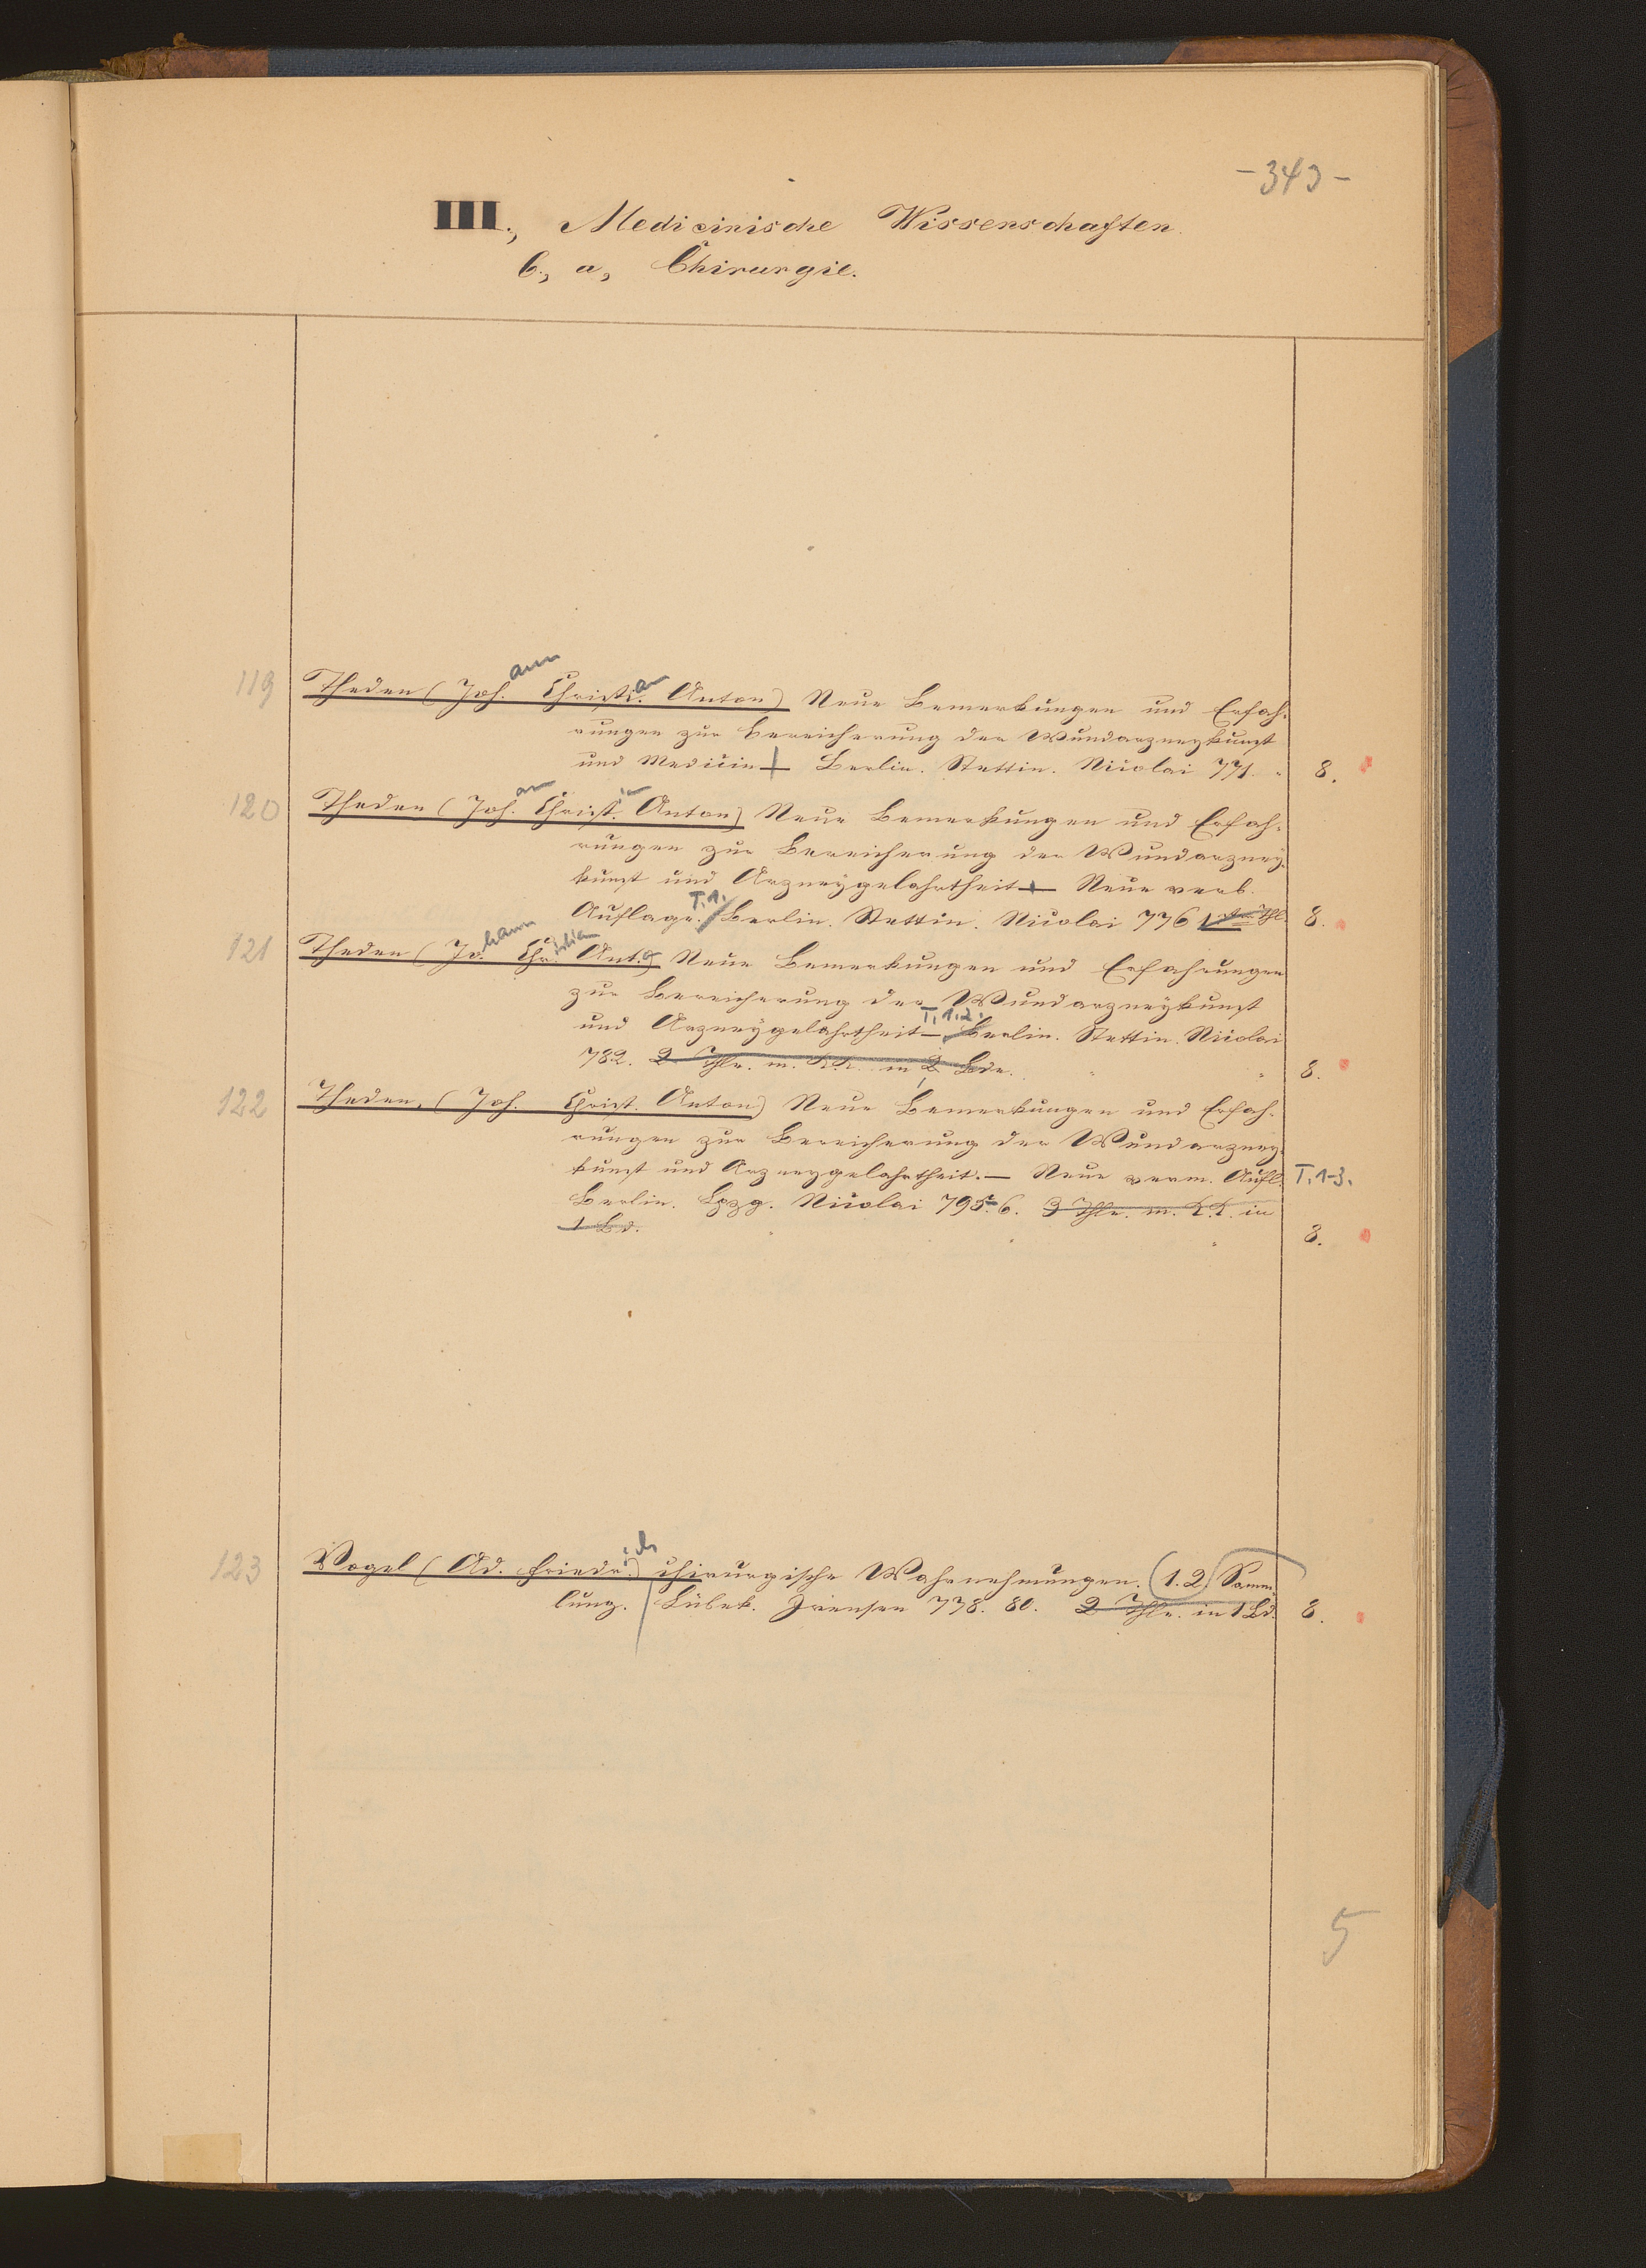 -343-
III., Medicinische Wissenschaften.
C., a, Chirurgie.
119 Theden (Johann Christian Anton) Neue Bemerkungen und Erfah-
rungen zur Bereicherung der Wundarzneykunst
und Medicin Berlin. Stettin. Nicolai 771. 8.
120 Theden (Joh. Christ. Anton) Neue Bemerkungen und Erfah-
rungen zur Bereicherung der Wundarzney-
kunst und Arzneygelahrtheit — Neue verb.
Auflage. T. 1. Berlin. Stettin. Nicolai 776 8.
121 Theden (Johann Christian Ant.) Neue Bemerkungen und Erfahrungen
zur Bereicherung der Wundarzneykunst
und Arzneygelahrtheit — T. 1.2. Berlin. Stettin. Nicolai
782. 2 Thle. m. K.K. in 2 Bde. 8.
122 Theden, (Joh. Christ. Anton) Neue Bemerkungen und Erfah-
rungen zur Bereicherung der Wundarzney-
kunst und Arzneygelahrtheit. — Neue verm. Aufl. T. 1-3.
Berlin. Lpzg. Nicolai 795.6. 3 Thle. m. K.K. in
1 Bd. 8.
123 Vogel (Ad. Friedrich) chirurgische Wahrnehmungen. (1.2) Samm-
lung. Lübek. Iversen 778. 80. 2 Thle. in 1 Bd. 8.
5